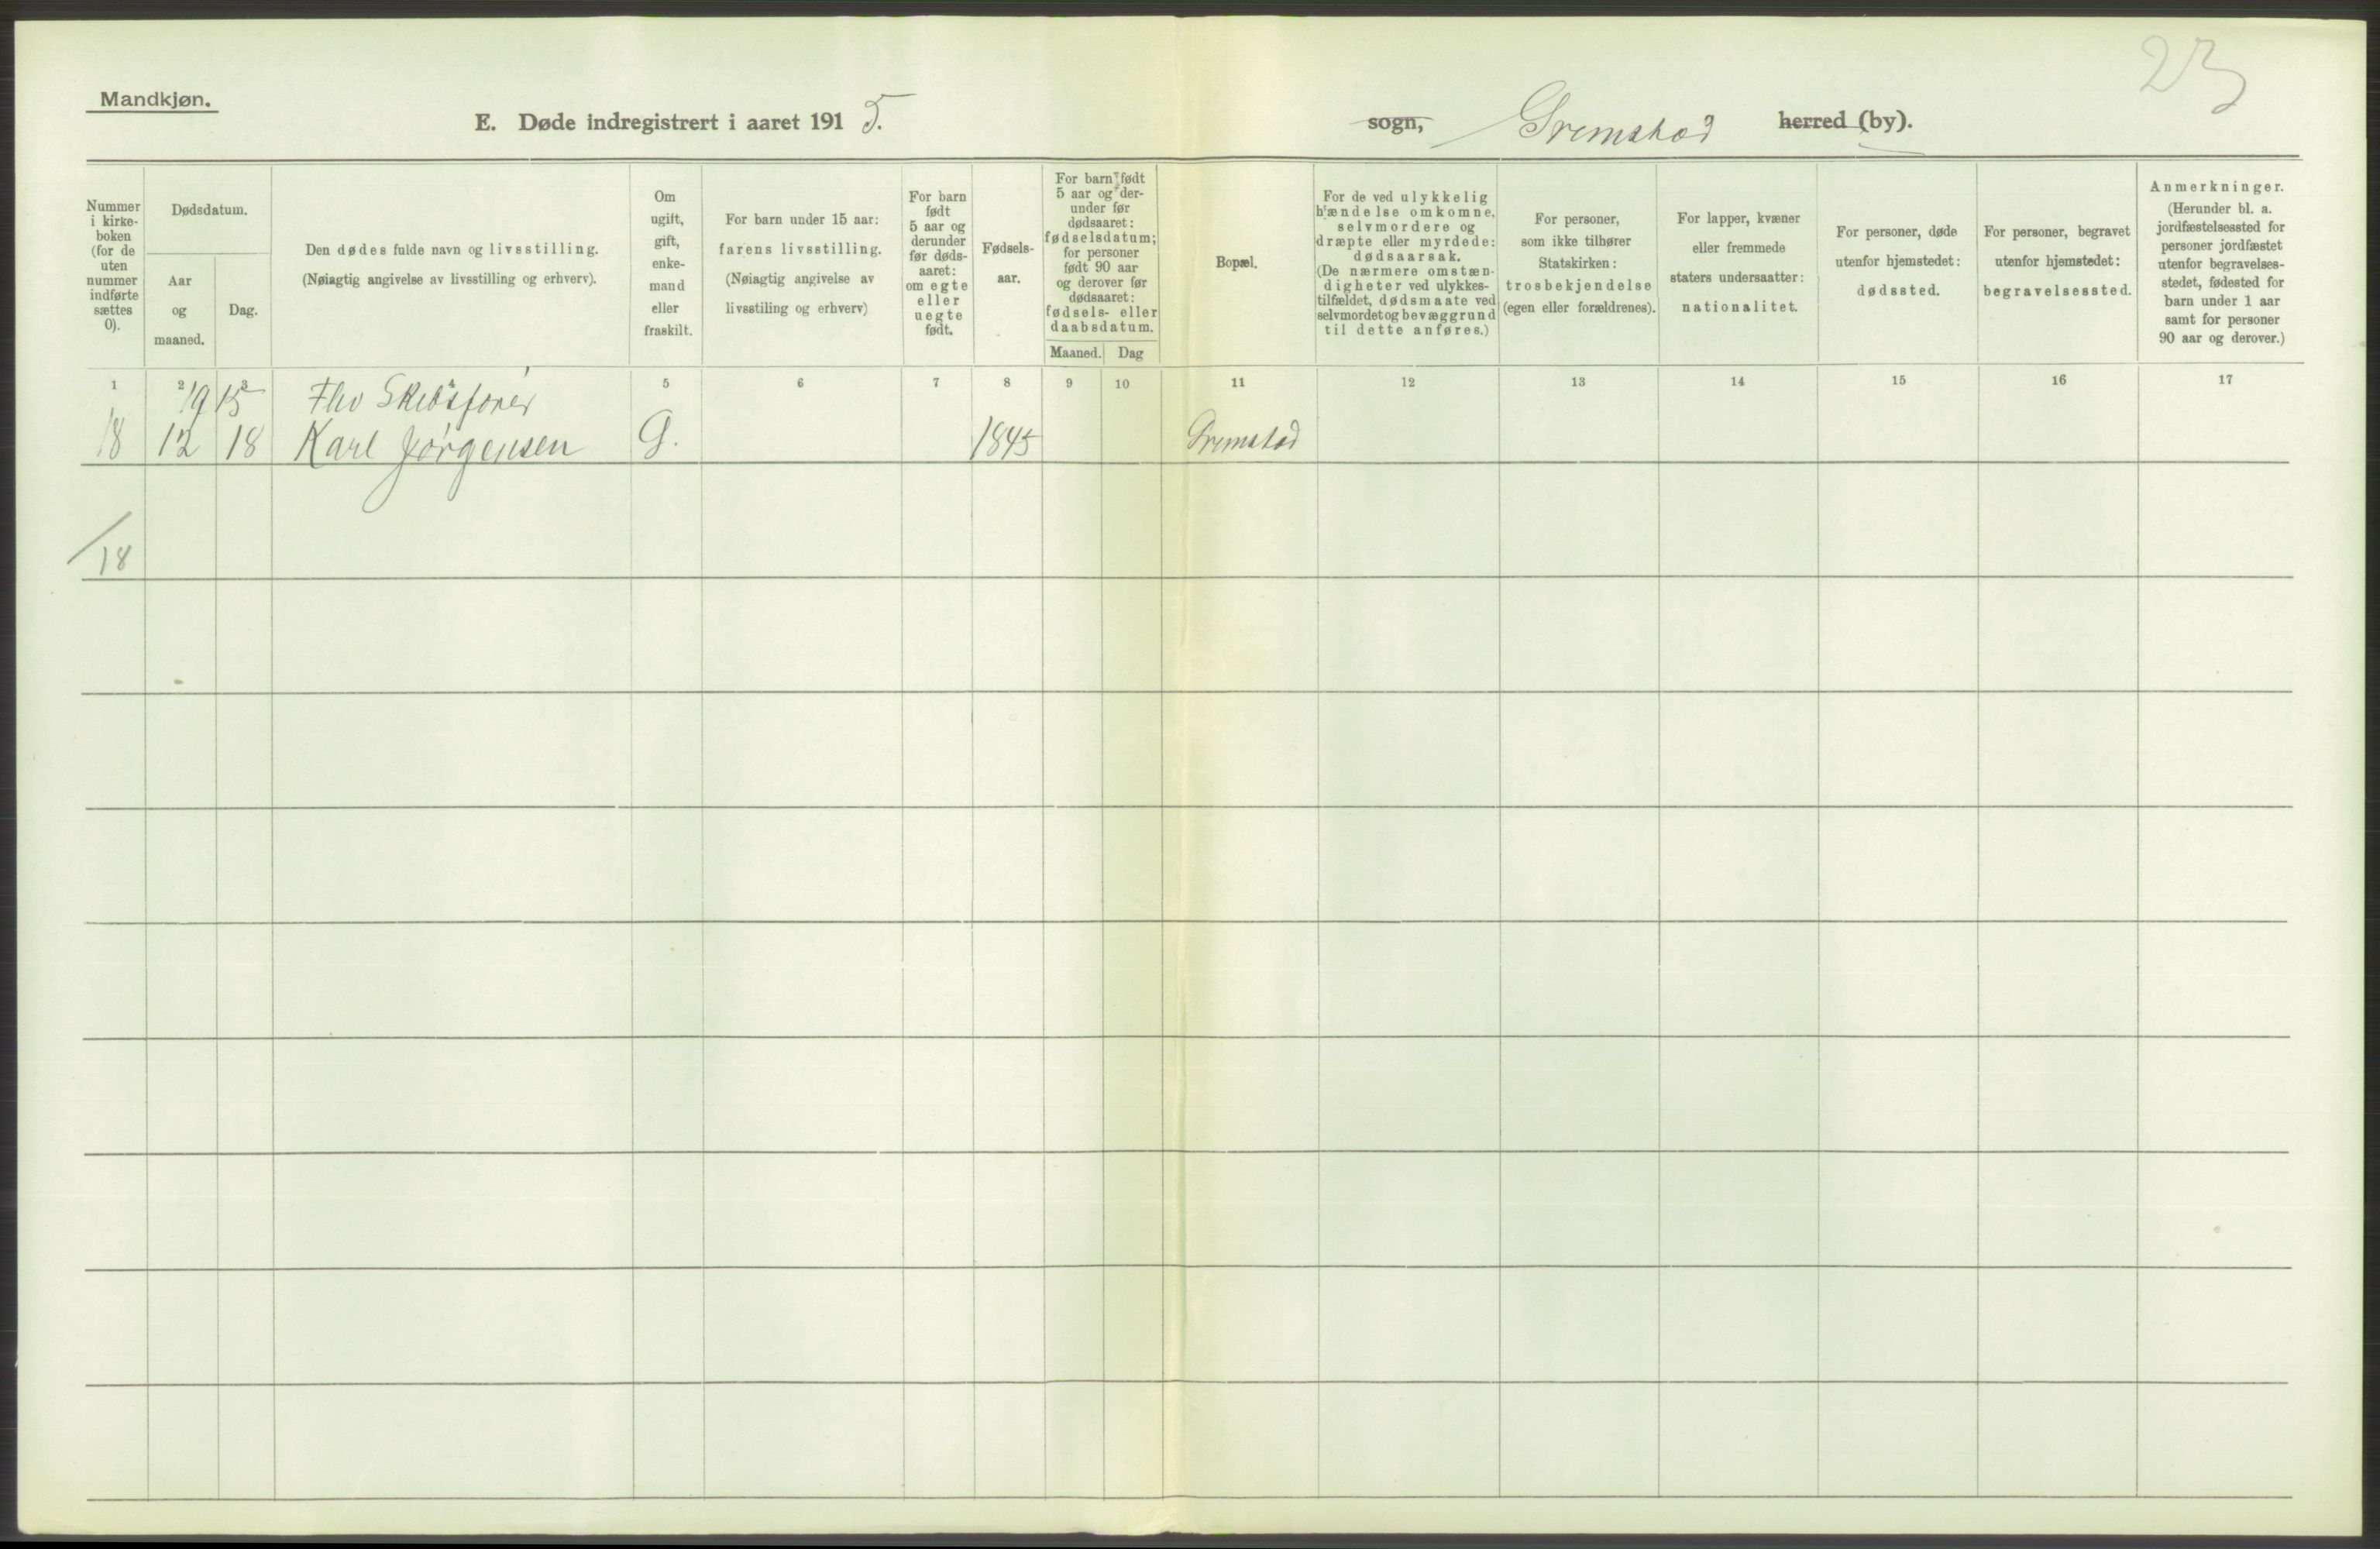 23
Mandkjøn.
E. Døde indregistrert i aaret 1915.
sogn, Grimstad herred (by).
Nummer i kirke-boken (for de uten nummer indførte sættes 0).
Dødsdatum.
Aar og maaned.
Dag.
Den dødes fulde navn og livsstilling.
(Nøiagtig angivelse av livsstilling og erhverv).
Om ugift, gift, enke-mand eller fraskilt.
For barn under 15 aar:
farens livsstilling.
(Nøiagtig angivelse av
livsstiling og erhverv)
For barn født 5 aar og derunder før døds-aaret: om egte eller uegte født.
Fødsels-aar.
For barn født 5 aar og der-under før dødsaaret: fødselsdatum; for personer født 90 aar og derover før dødsaaret: fødsels- eller daabsdatum.
Maaned. Dag
Bopæl.
For de ved ulykkelig hændelse omkomne, selvmordere og dræpte eller myrdede: dødsaarsak. (De nærmere omstæn-digheter ved ulykkes-tilfældet, dødsmaate ved selvmordet og bevæggrund til dette anføres.)
For personer, som ikke tilhører Statskirken: trosbekjendelse (egen eller forældrenes).
For lapper, kvæner eller fremmede staters undersaatter: nationalitet.
For personer, døde utenfor hjemstedet: dødssted.
For personer, begravet utenfor hjemstedet: begravelsessted.
Anmerkninger. (Herunder bl. a. jordfæstelsessted for personer jordfæstet utenfor begravelses-stedet, fødested for barn under 1 aar samt for personer 90 aar og derover.)
1 2 3 4 5 6 7 8 9 10 11 12 13 14 15 16 17
1915 Fhv Skibsfører
18 12 18 Karl Jørgensen G. 1845 Grimstad
18